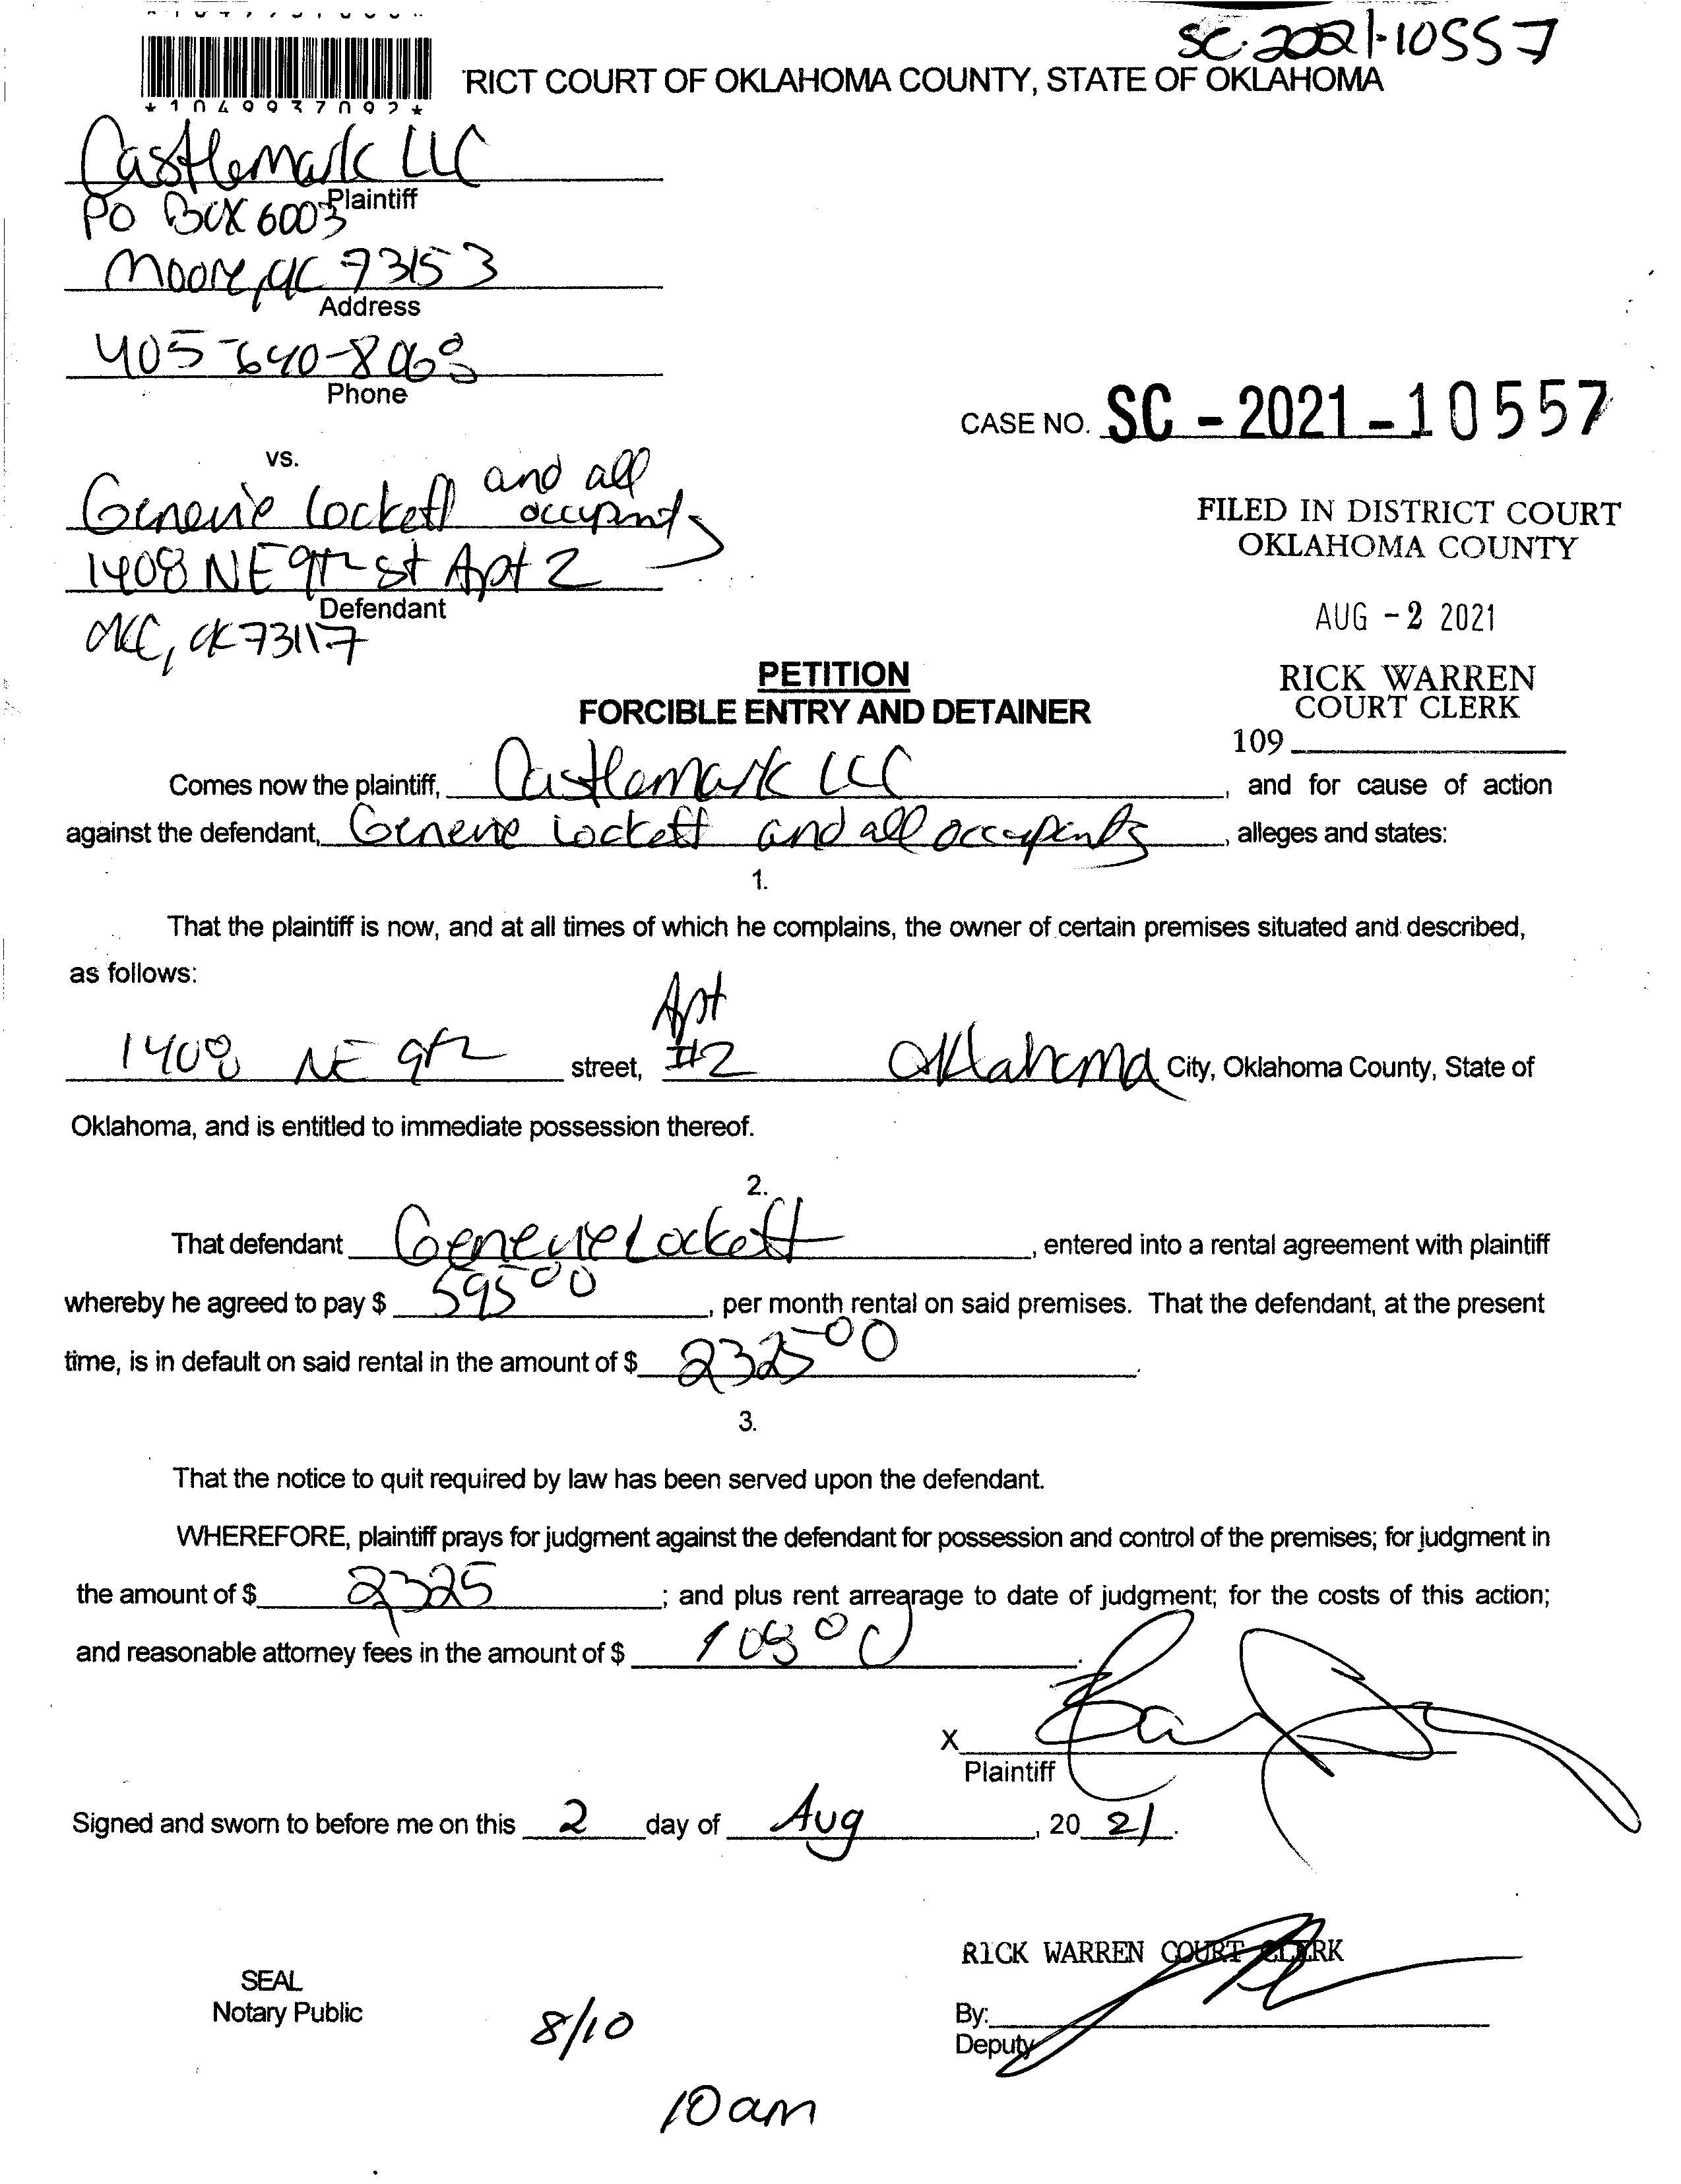 SC-2021-10557
RICT COURT OF OKLAHOMA COUNTY, STATE OF OKLAHOMA
*1049937092*
Castlemark LLC
Plaintiff
PO BOX 6003
Moore, OK 73153
Address
405-640-8068
Phone
CASE NO. SC - 2021 - 10557
vs.
Genevie Lockett and all occupants
1408 NE 9th St Apt 2
Defendant
OKC, OK 73117
FILED IN DISTRICT COURT
OKLAHOMA COUNTY
AUG - 2 2021
RICK WARREN
COURT CLERK
109
PETITION
FORCIBLE ENTRY AND DETAINER
Comes now the plaintiff, Castlemark LLC, and for cause of action
against the defendant, Genevie Lockett and all occupants, alleges and states:
1.
That the plaintiff is now, and at all times of which he complains, the owner of certain premises situated and described,
as follows:
1408 NE 9th street, Apt #2 Oklahoma City, Oklahoma County, State of
Oklahoma, and is entitled to immediate possession thereof.
2.
That defendant Genevie Lockett, entered into a rental agreement with plaintiff
whereby he agreed to pay $ 595 00, per month rental on said premises. That the defendant, at the present
time, is in default on said rental in the amount of $ 2325 00.
3.
That the notice to quit required by law has been served upon the defendant.
WHEREFORE, plaintiff prays for judgment against the defendant for possession and control of the premises; for judgment in
the amount of $ 2325; and plus rent arrearage to date of judgment; for the costs of this action;
and reasonable attorney fees in the amount of $ 108 00.
X
Plaintiff
Signed and sworn to before me on this 2 day of Aug, 20 21.
RICK WARREN COURT CLERK
SEAL
Notary Public
By:
Deputy
8/10
10 am